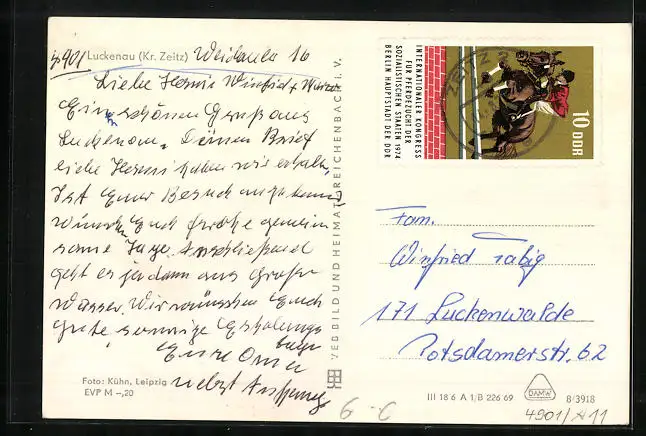 4901 Luckenau (Kr. Zeitz) Weidenlr 16
Liebe Hermi Winfried +
Einen schönen Gruß aus
Luckenau. Deinen Brief
liebe Hermi haben wir erhalten,
Ist Euer Besuch
wünschen Euch frohe gemein
same Tage. Anschließend
geht es ja dann ans große
Wasser. Wir wünschen Euch
gute sonnige Erholungs
tage
Eure Oma
nebst Anhang
Foto: Kühn, Leipzig
EVP M –,20
VEB BILD UND HEIMAT REICHENBACH i. V.
INTERNATIONALER KONGRESS
FÜR PFERDEZUCHT DER
SOZIALISTISCHEN STAATEN 1974
BERLIN HAUPTSTADT DER DDR
10 DDR
ZEITZ 2
Fam.
Winfried Tabig
171 Luckenwalde
Potsdamerstr. 62
III 18 6 A 1/B 226 69
DAMW
8/3918
G-C
4901/A11